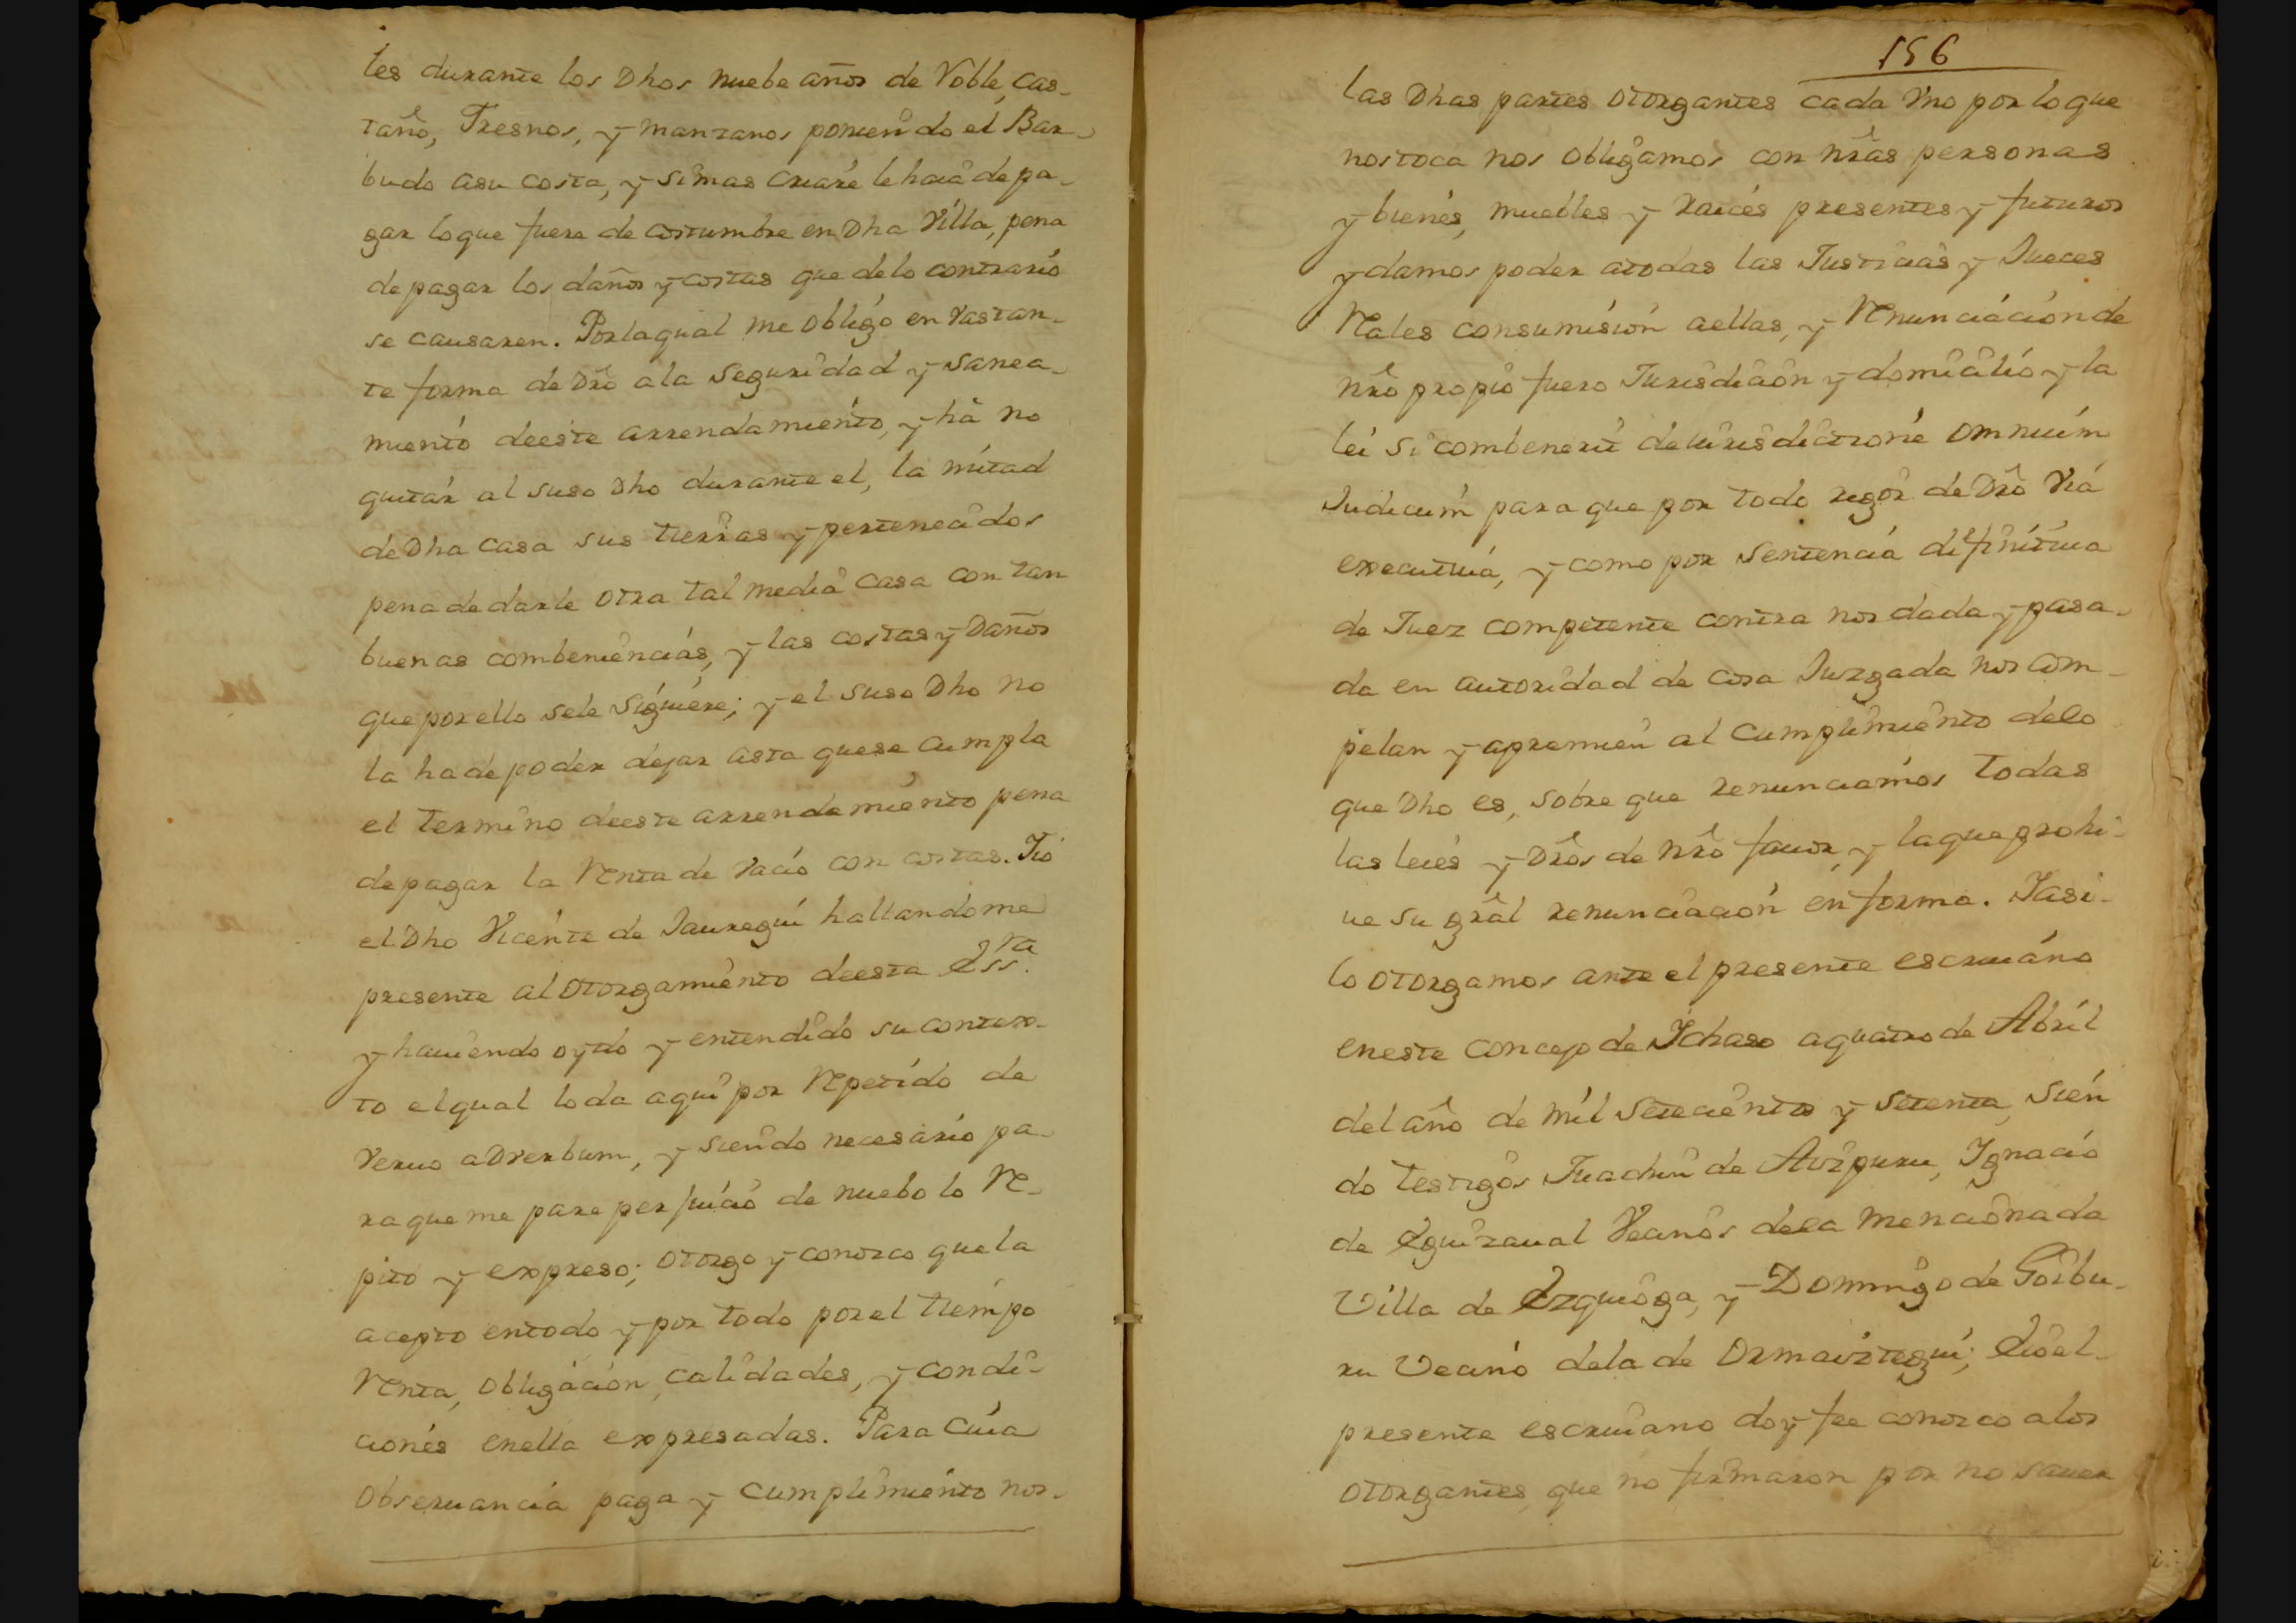 les durante los Dhos nuebe años de Roble, cas-
taño, Fresnos, y manzanos poniendo el Bar-
budo asu costa, y simas criare le haia de pa-
gar loque fuere de costumbre en Dha Villa, pena
de pagar los daños y costas que delo contrario
se causaren. Porlaqual me obligo en vastan-
te forma de Dro ala seguridad y sanea-
miento deeste arrendamiento, y ha no
quitar al suso Dho durante el, la mitad
de Dha casa sus tierras y pertenecidos
pena de darle otra tal media casa con tan
buenas combeniencias, y las costas y Daños
que por ello sele siguiere; y el suso Dho no
la ha de poder dejar asta que se cumpla
el termino deeste arrendamiento pena
de pagar la Renta de vacio con costas. Yio
el Dho Vicente de Jauregui hallandome
presente al otorgamiento deesta Essra.
y haviendo oydo y entendido su contex-
to elqual loda aqui por Repetido de
vervo adverbum, y siendo necesario pa-
ra que me pare perjuicio de nuebo lo Re-
pito y expreso; otorgo y conozco que la
acepto entodo y por todo por el tiempo
Renta, obligacion, calidades, y condi-
ciones enella expresadas. Para cuia
observancia paga y cumplimiento nos-
156
las Dhas partes otorgantes cada vno por lo que
nos toca nos obligamos con nras personas
y bienes, muebles y raices presentes y futuros
y damos poder atodas las Justicias y Jueces
Reales consumision aellas, y Renunciacion de
nro propio fuero Jurisdicion y domicilio y la
lei si combenerit de iurisdictione omnium
Judicum para que por todo rigor de Dro via
executiva, y como por sentencia difinitiva
de Juez competente contra nos dada y pasa-
da en autoridad de cosa Juzgada nos com-
pelan y apremien al cumplimiento delo
que Dho es, sobre que renunciamos todas
las leies y Dros de nro favor, y la que prohi-
ve su gral renunciacion en forma. Yasi-
lo otorgamos ante el presente escrivano
en este concejo de Ichaso a quatro de Abril
del año de mil setecientos y setenta, sien
do testigos Juachin de Aizpuru, Ignacio
de Eguizaval Vecinos dela mencionada
Villa de Ezquioga, y Domingo de Goibu-
ru Vecino dela de Ormaiztegui; Eioel
presente escrivano doy fee conozco alos
otorgantes, que no firmaron por no saver